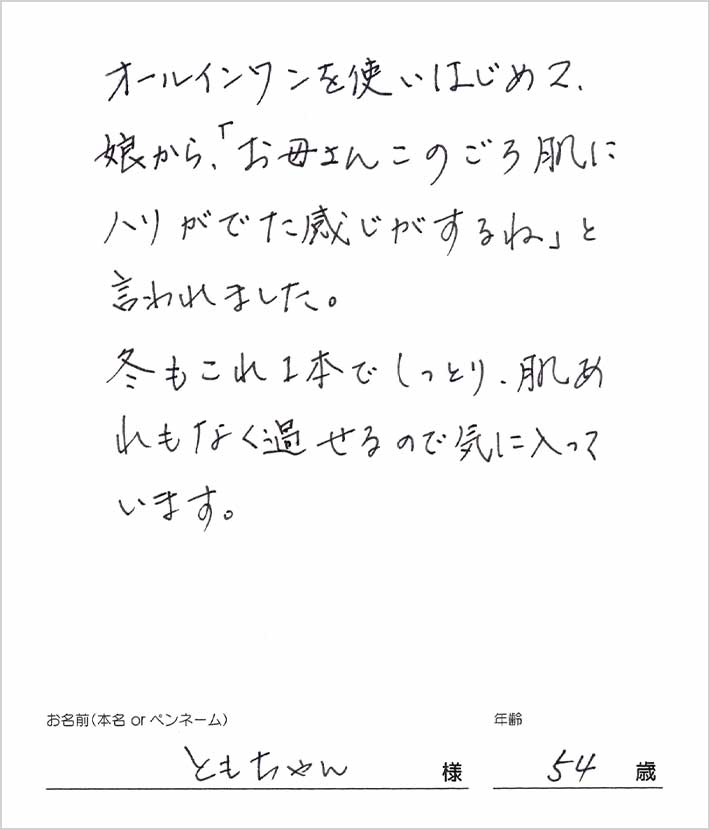 オールインワンを使いはじめて、
娘から、「お母さんこのごろ肌に
ハリがでた感じがするね」と
言われました。
冬もこれ1本でしっとり、肌あ
れもなく過せるので気に入って
います。
お名前(本名 or ペンネーム) 年齢
ともちゃん 様 54 歳